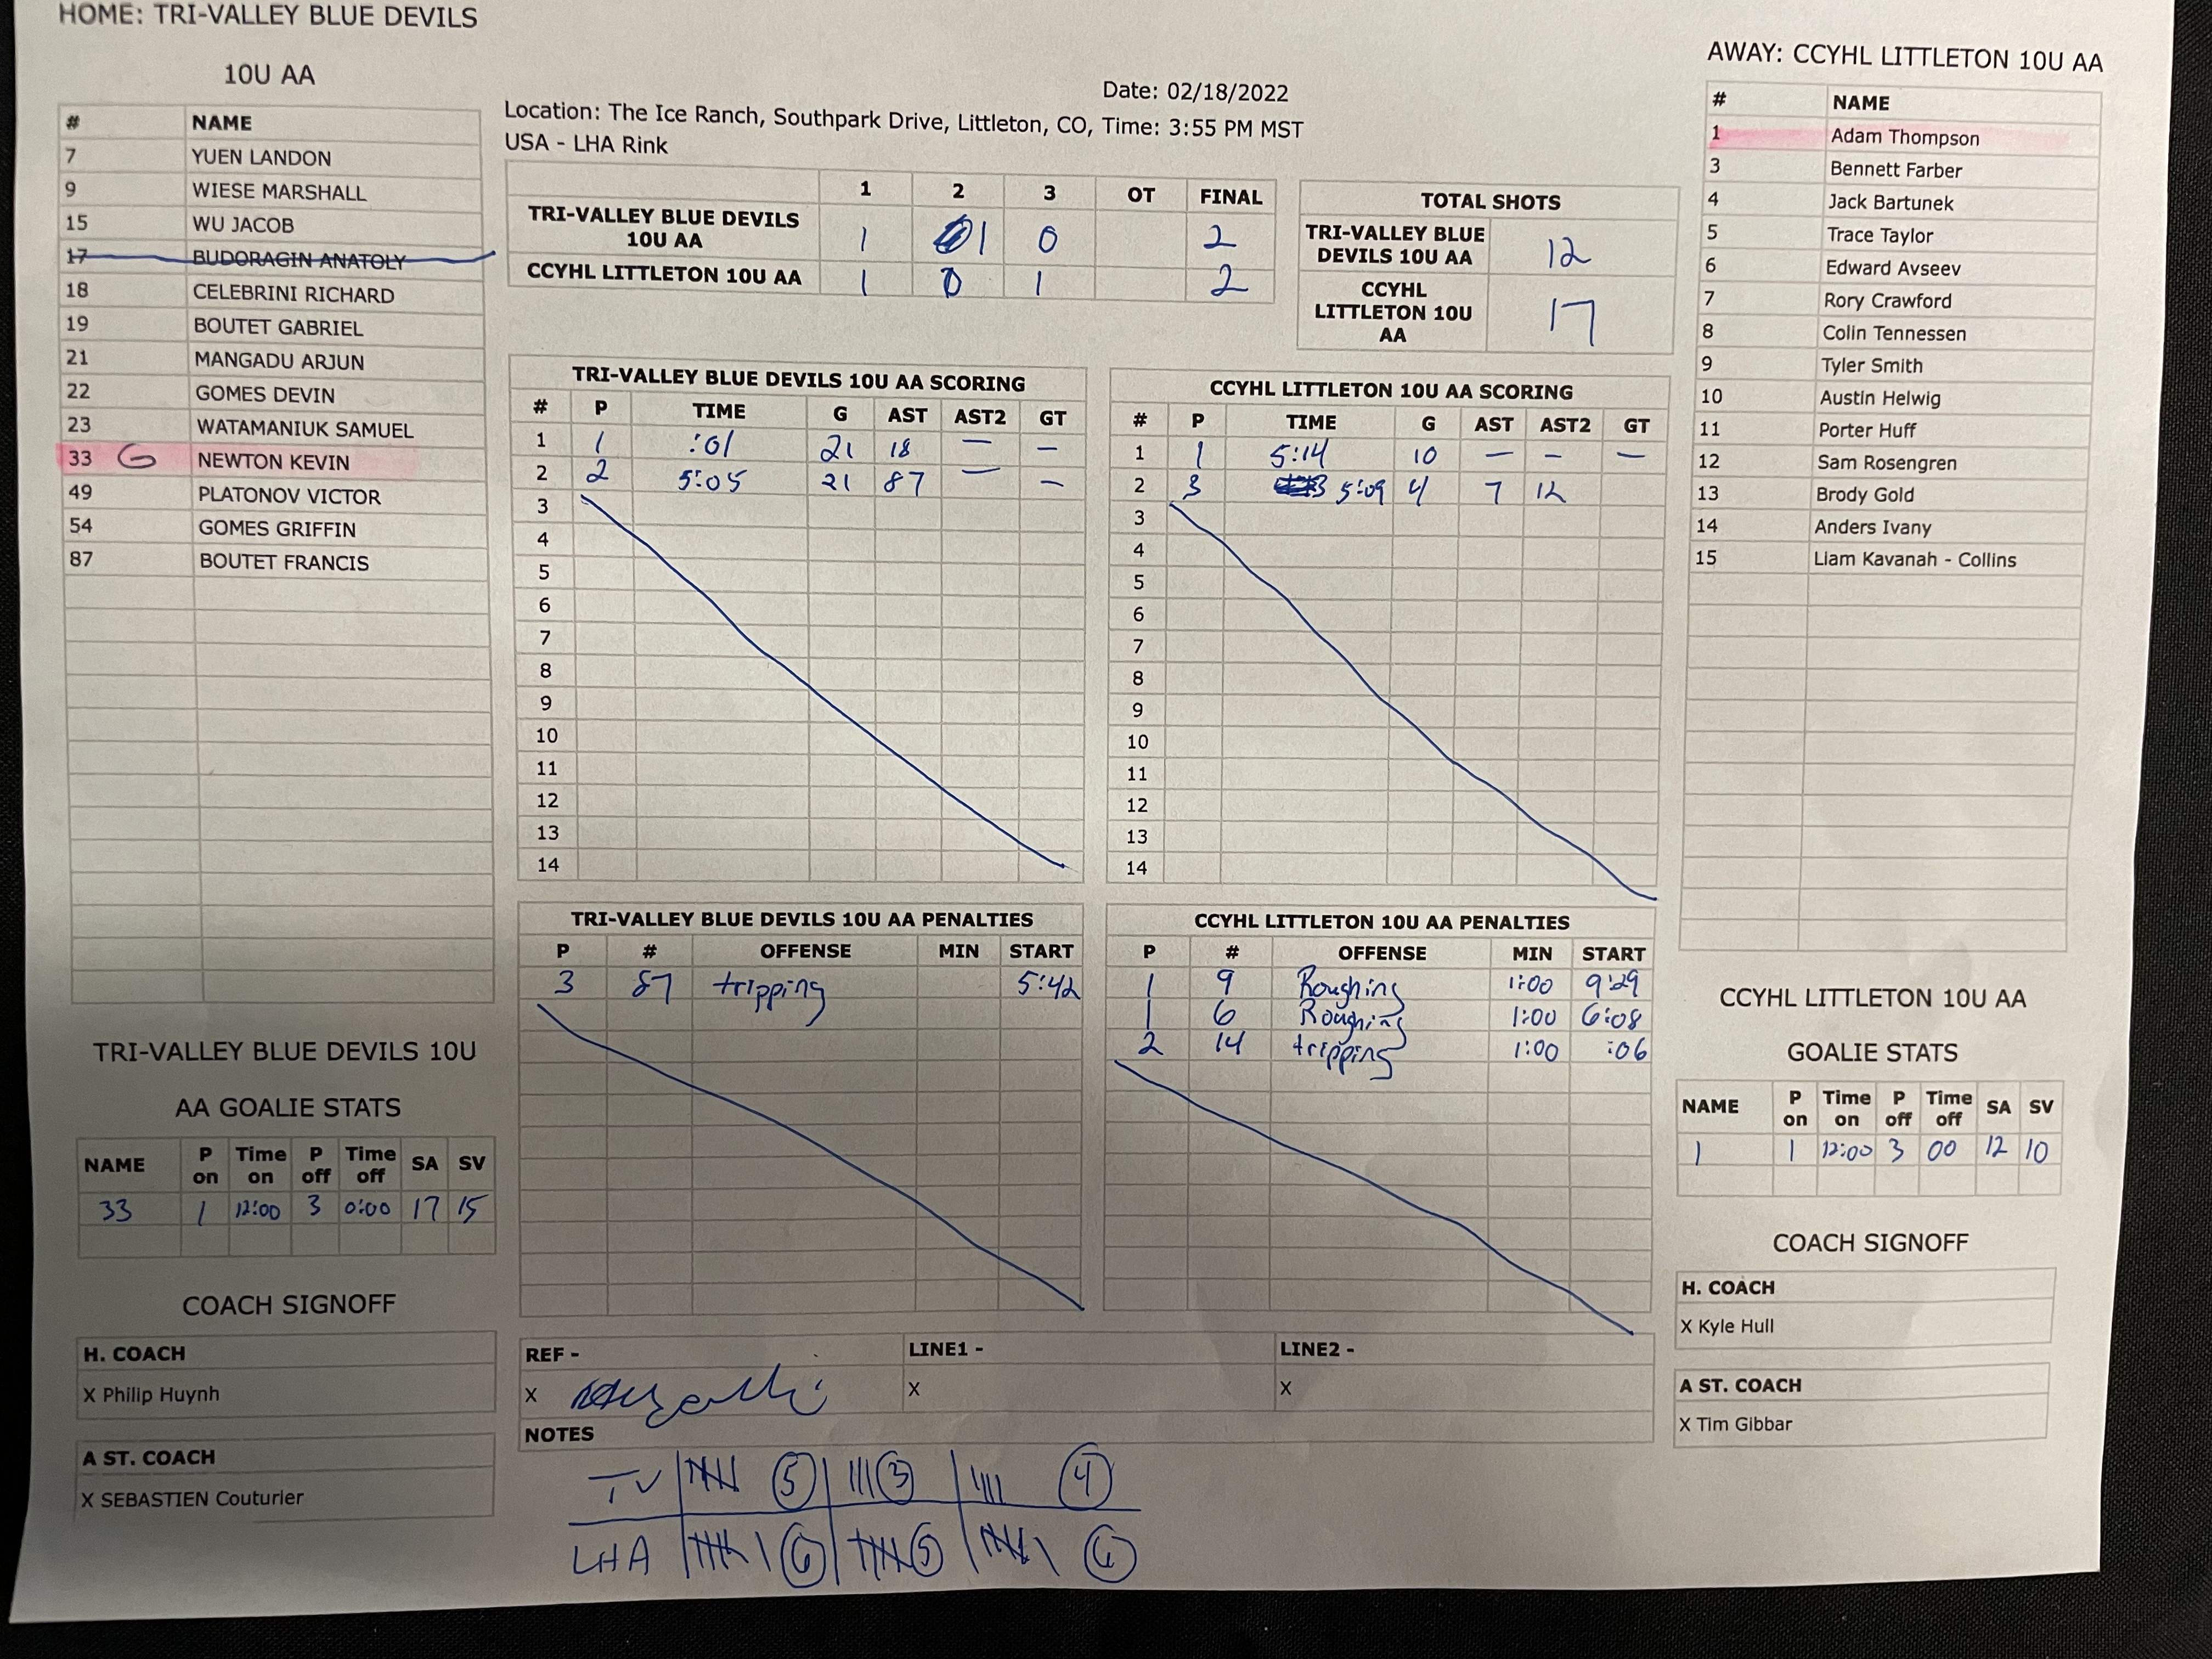 HOME: TRI-VALLEY BLUE DEVILS
10U AA
# NAME
7 YUEN LANDON
9 WIESE MARSHALL
15 WU JACOB
17 BUDORAGIN ANATOLY
18 CELEBRINI RICHARD
19 BOUTET GABRIEL
21 MANGADU ARJUN
22 GOMES DEVIN
23 WATAMANIUK SAMUEL
33 G NEWTON KEVIN
49 PLATONOV VICTOR
54 GOMES GRIFFIN
87 BOUTET FRANCIS
TRI-VALLEY BLUE DEVILS 10U
AA GOALIE STATS
NAME P on Time on P off Time off SA SV
33 1 12:00 3 0:00 17 15
COACH SIGNOFF
H. COACH
X Philip Huynh
A ST. COACH
X SEBASTIEN Couturier
Date: 02/18/2022
Location: The Ice Ranch, Southpark Drive, Littleton, CO, Time: 3:55 PM MST
USA - LHA Rink
1 2 3 OT FINAL
TRI-VALLEY BLUE DEVILS 10U AA 1 1 0 2
CCYHL LITTLETON 10U AA 1 0 1 2
TOTAL SHOTS
TRI-VALLEY BLUE DEVILS 10U AA 12
CCYHL LITTLETON 10U AA 17
TRI-VALLEY BLUE DEVILS 10U AA SCORING
# P TIME G AST AST2 GT
1 1 :01 21 18 — —
2 2 5:05 21 87 — —
3
4
5
6
7
8
9
10
11
12
13
14
CCYHL LITTLETON 10U AA SCORING
# P TIME G AST AST2 GT
1 1 5:14 10 — — —
2 3 5:09 4 7 12
3
4
5
6
7
8
9
10
11
12
13
14
TRI-VALLEY BLUE DEVILS 10U AA PENALTIES
P # OFFENSE MIN START
3 87 tripping 5:42
CCYHL LITTLETON 10U AA PENALTIES
P # OFFENSE MIN START
1 9 Roughing 1:00 9:29
1 6 Roughing 1:00 6:08
2 14 tripping 1:00 :06
REF - LINE1 - LINE2 -
X X X
NOTES
TV 5 3 4
LHA 6 5 6
AWAY: CCYHL LITTLETON 10U AA
# NAME
1 Adam Thompson
3 Bennett Farber
4 Jack Bartunek
5 Trace Taylor
6 Edward Avseev
7 Rory Crawford
8 Colin Tennessen
9 Tyler Smith
10 Austin Helwig
11 Porter Huff
12 Sam Rosengren
13 Brody Gold
14 Anders Ivany
15 Liam Kavanah - Collins
CCYHL LITTLETON 10U AA
GOALIE STATS
NAME P on Time on P off Time off SA SV
1 1 12:00 3 00 12 10
COACH SIGNOFF
H. COACH
X Kyle Hull
A ST. COACH
X Tim Gibbar